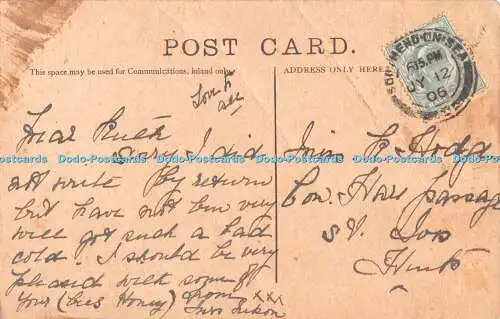 POST CARD.
This space may be used for Communications, inland only.
ADDRESS ONLY HERE
SOUTHEND-ON-SEA
6.15 PM
JY 12
06
Love to
all
Dear Ruth
Sorry I did
not write By return
but have not been very
well got such a bad
cold. I should be very
pleased with some of
your (Bees Honey) from
xxx
Miss R. Hodg
Con. Hall passage
St. Ives
Hunts
Dodo-Postcards Dodo-Postcards Dodo-Postcards Dodo-Postcards Dodo-Postcards